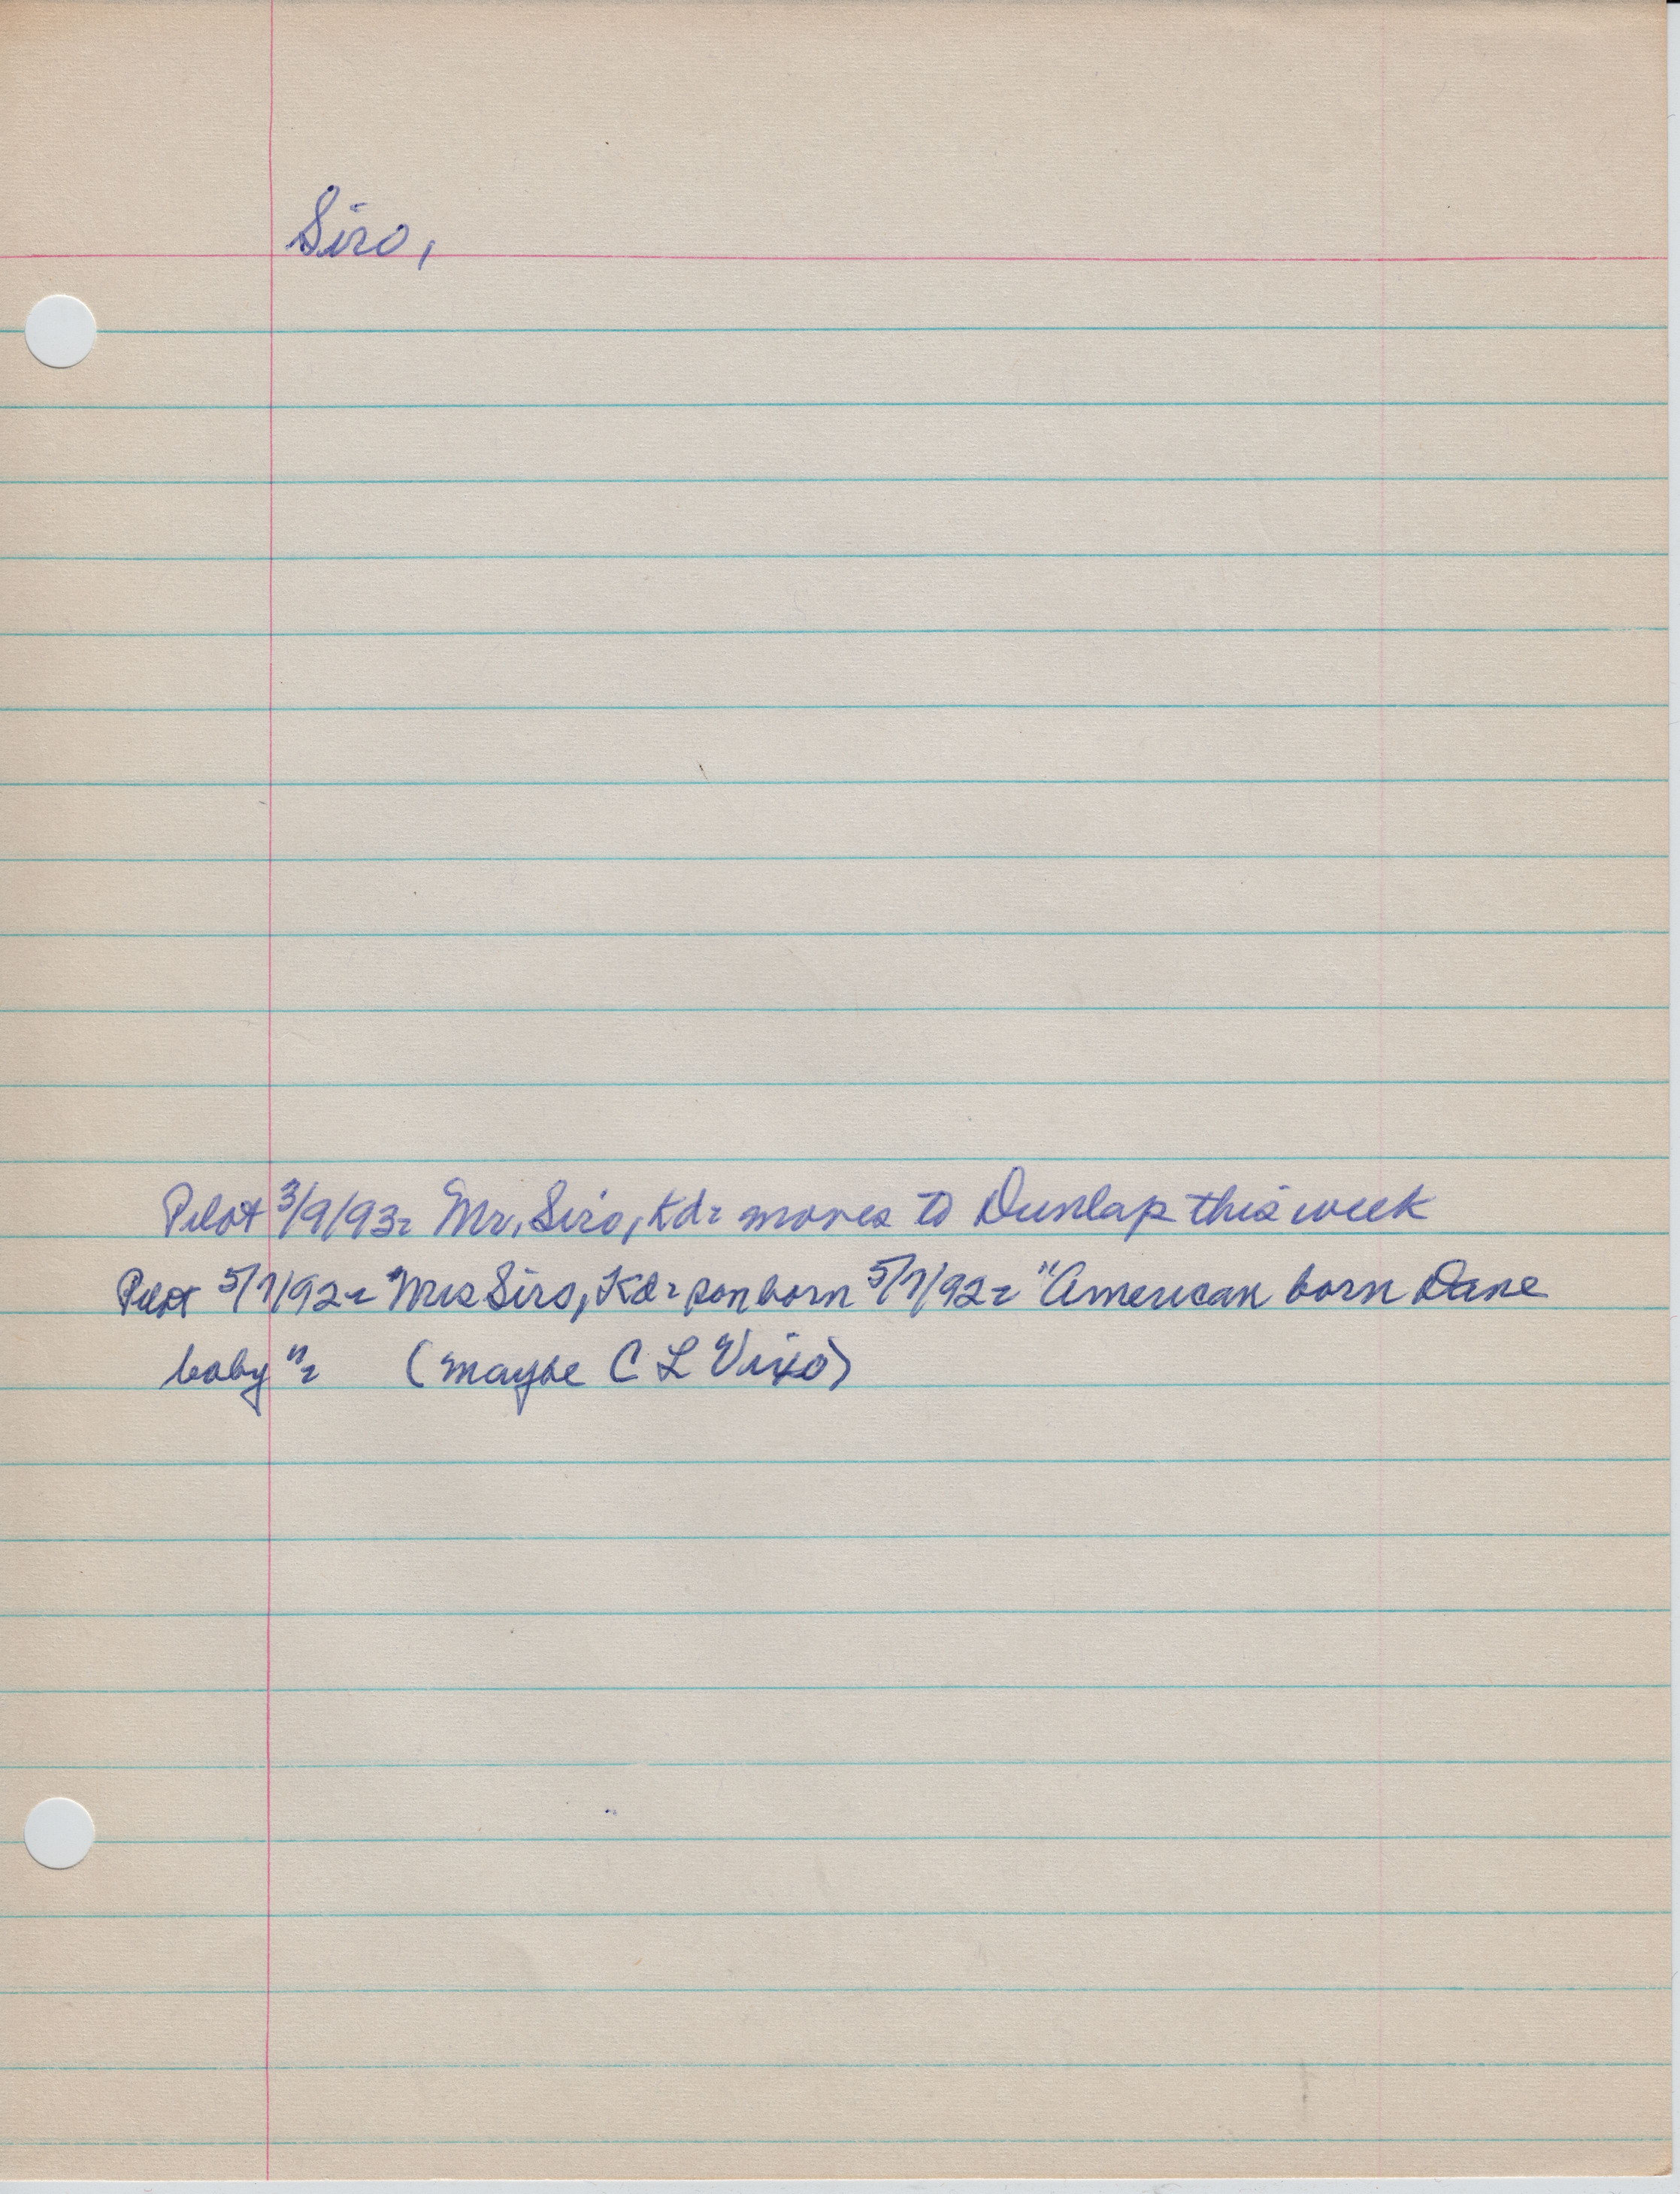 Siro,
Pilot 3/9/93= Mr. Siro, Kd= moves to Dunlap this week
Pilot 5/7/92= Mrs Siro, Kd= son born 5/7/92= "American born Dane
baby"= (maybe C L Viso)